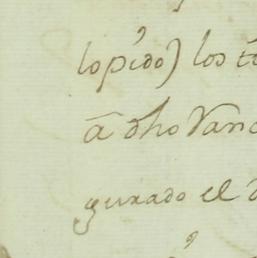 lo pido) los
ā dho Van
gurado el